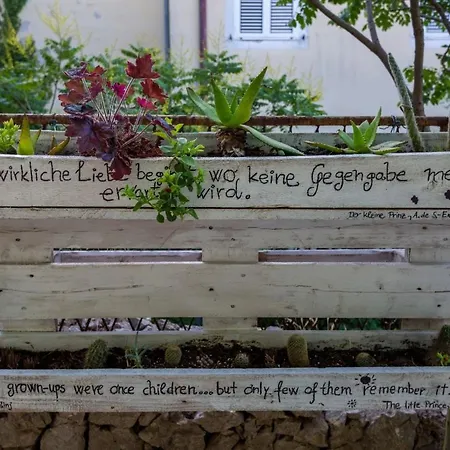 wirkliche Liebe beginnt, wo keine Gegengabe me
erwartet wird.
Der kleine Prinz, A. de S-Ex
grown-ups were once children...but only few of them remember it.
The little Prince